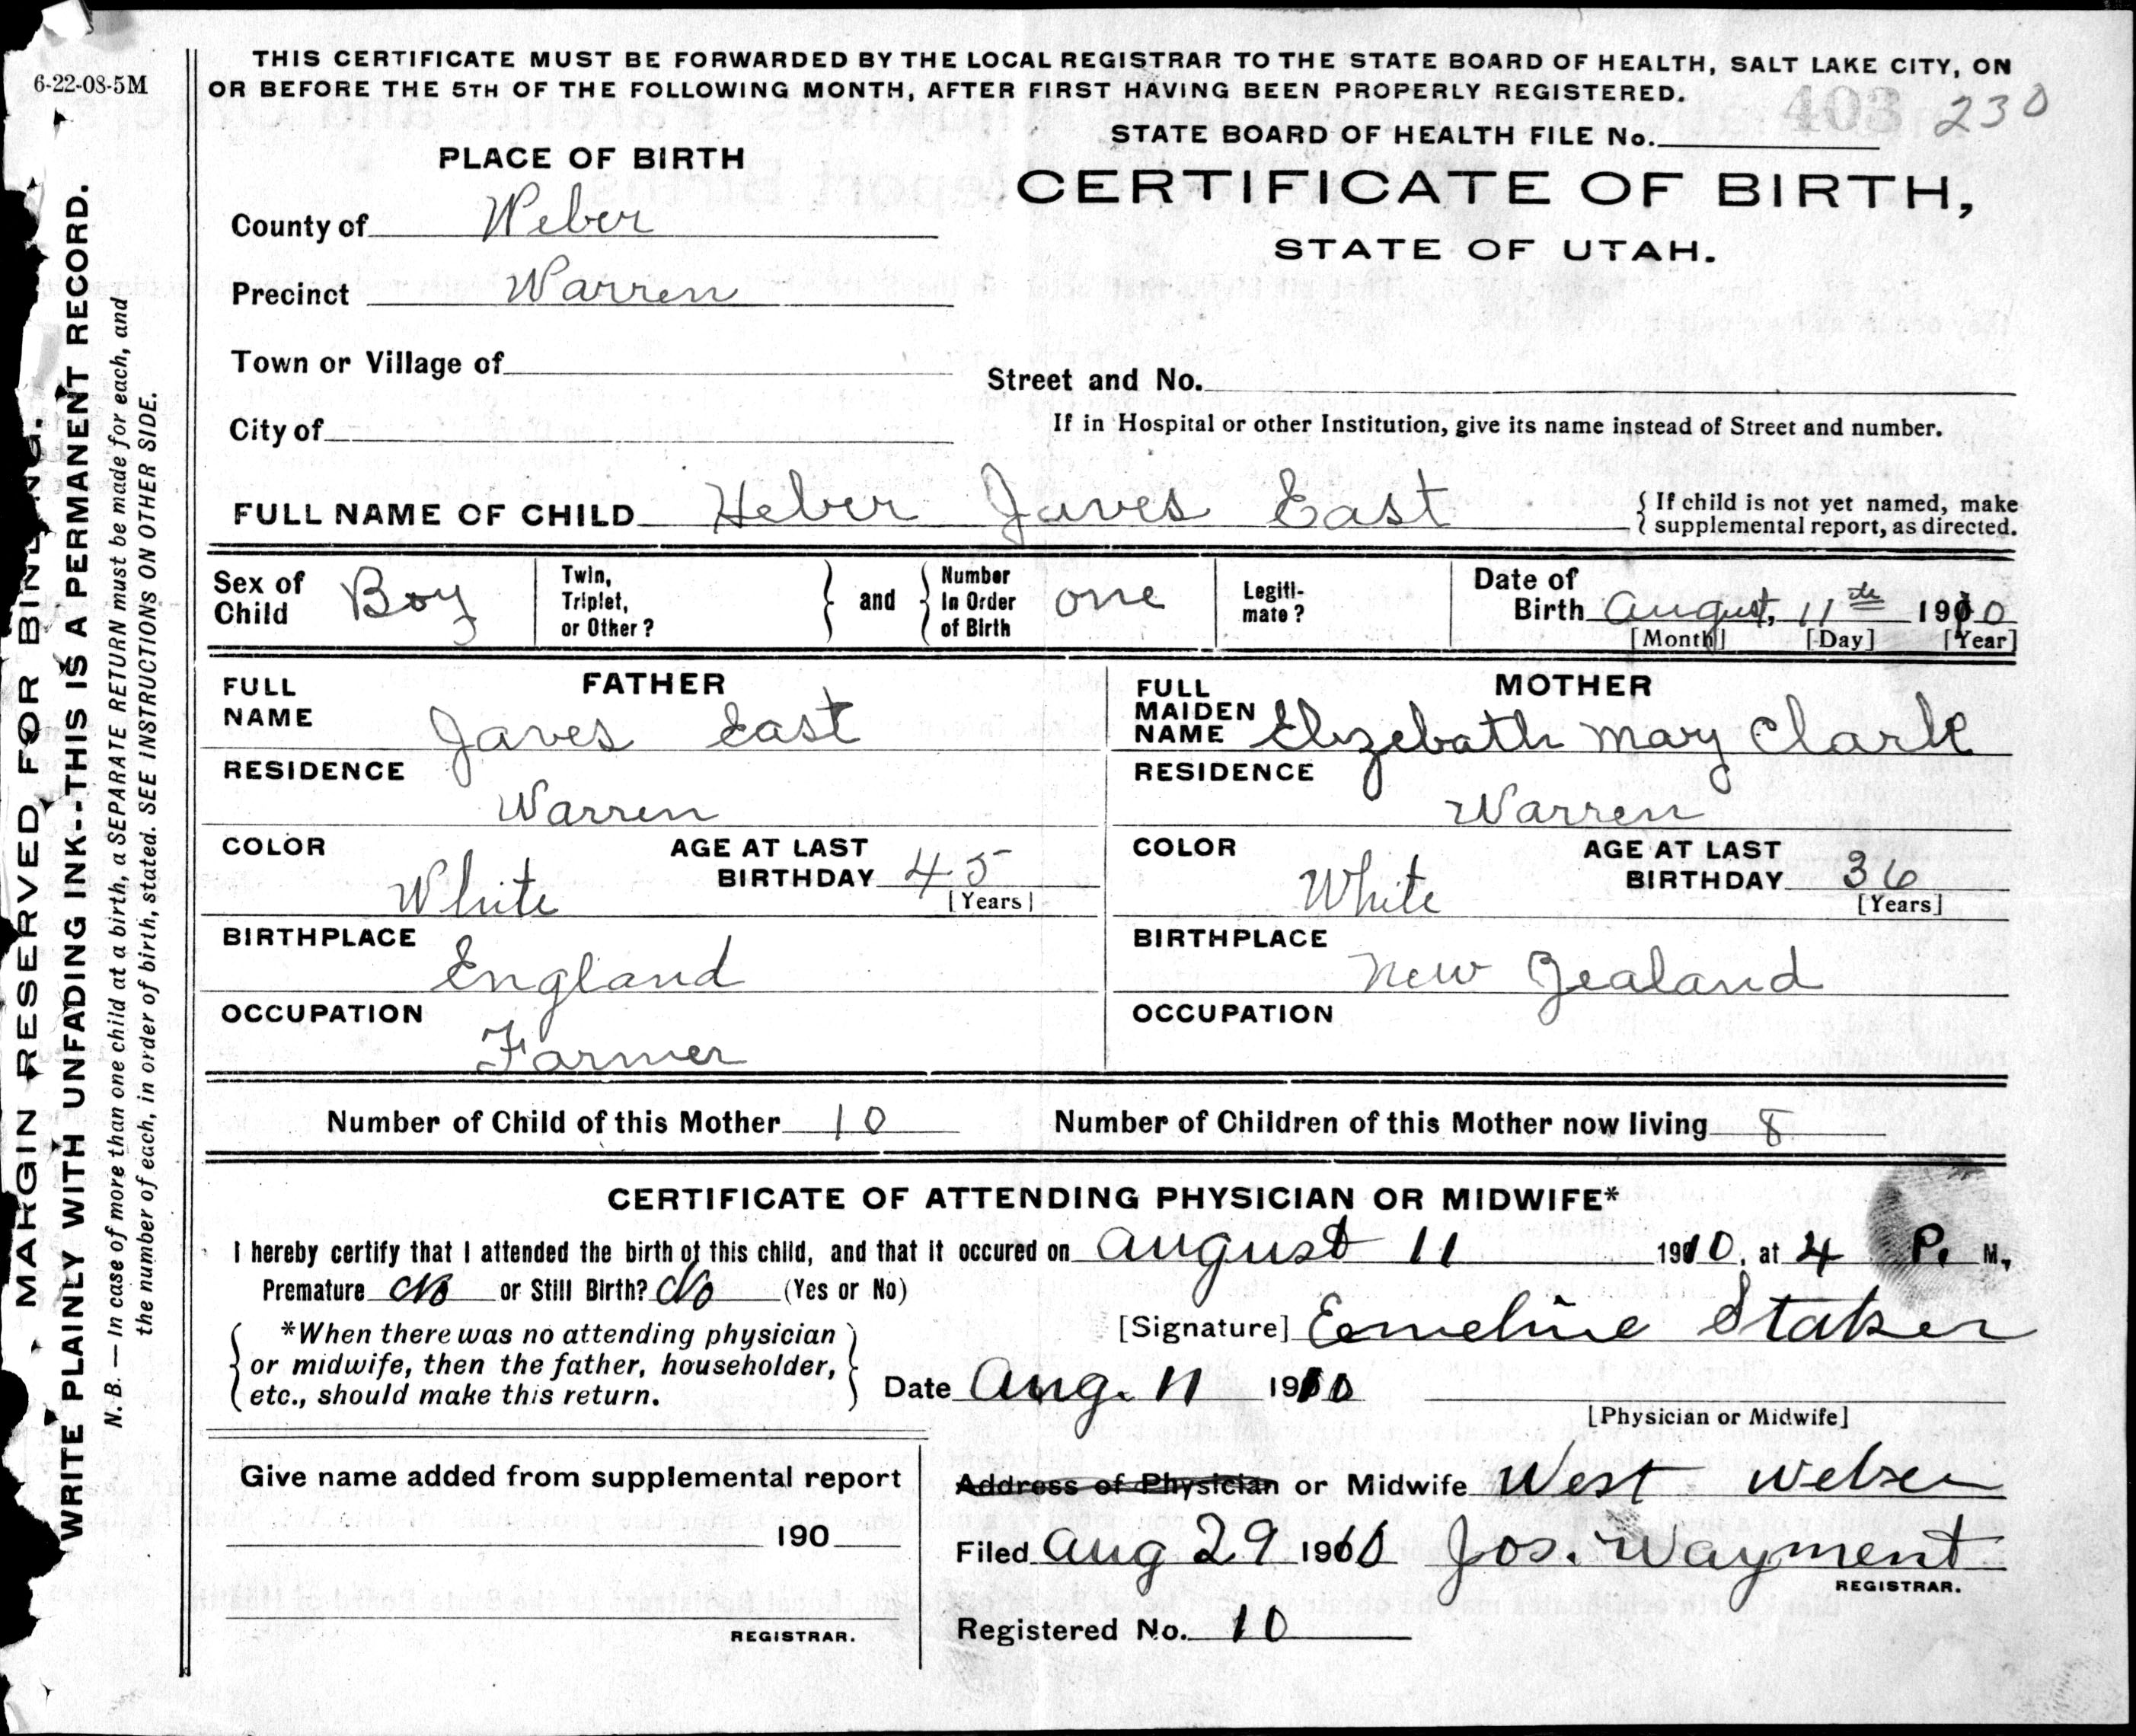 6-22-08-5M
THIS CERTIFICATE MUST BE FORWARDED BY THE LOCAL REGISTRAR TO THE STATE BOARD OF HEALTH, SALT LAKE CITY, ON
OR BEFORE THE 5TH OF THE FOLLOWING MONTH, AFTER FIRST HAVING BEEN PROPERLY REGISTERED.
STATE BOARD OF HEALTH FILE No. 403 230
PLACE OF BIRTH
CERTIFICATE OF BIRTH,
STATE OF UTAH.
County of Weber
Precinct Warren
Town or Village of
Street and No.
City of
If in Hospital or other Institution, give its name instead of Street and number.
FULL NAME OF CHILD Heber Javes East { If child is not yet named, make
supplemental report, as directed.
Sex of Child Boy
Twin, Triplet, or Other? } and { Number In Order of Birth one
Legiti-mate?
Date of Birth August, 11th 1910
[Month] [Day] [Year]
FATHER
FULL NAME Javes East
RESIDENCE
Warren
COLOR White
AGE AT LAST BIRTHDAY 45
[Years]
BIRTHPLACE
England
OCCUPATION
Farmer
MOTHER
FULL MAIDEN NAME Elizebath Mary Clark
RESIDENCE
Warren
COLOR White
AGE AT LAST BIRTHDAY 36
[Years]
BIRTHPLACE
New Zealand
OCCUPATION
Number of Child of this Mother 10 Number of Children of this Mother now living 8
CERTIFICATE OF ATTENDING PHYSICIAN OR MIDWIFE*
I hereby certify that I attended the birth of this child, and that it occured on August 11 1910, at 4 P. M.,
Premature No or Still Birth? No (Yes or No)
[Signature] Emeline Staker
*When there was no attending physician
or midwife, then the father, householder,
etc., should make this return.
Date Aug. 11 1910
[Physician or Midwife]
Give name added from supplemental report
190
REGISTRAR.
Address of Physician or Midwife West Weber
Filed Aug 29 1910 Jos. Wayment
REGISTRAR.
Registered No. 10
MARGIN RESERVED FOR BINDING.
WRITE PLAINLY WITH UNFADING INK--THIS IS A PERMANENT RECORD.
N. B. — In case of more than one child at a birth, a SEPARATE RETURN must be made for each, and
the number of each, in order of birth, stated. SEE INSTRUCTIONS ON OTHER SIDE.